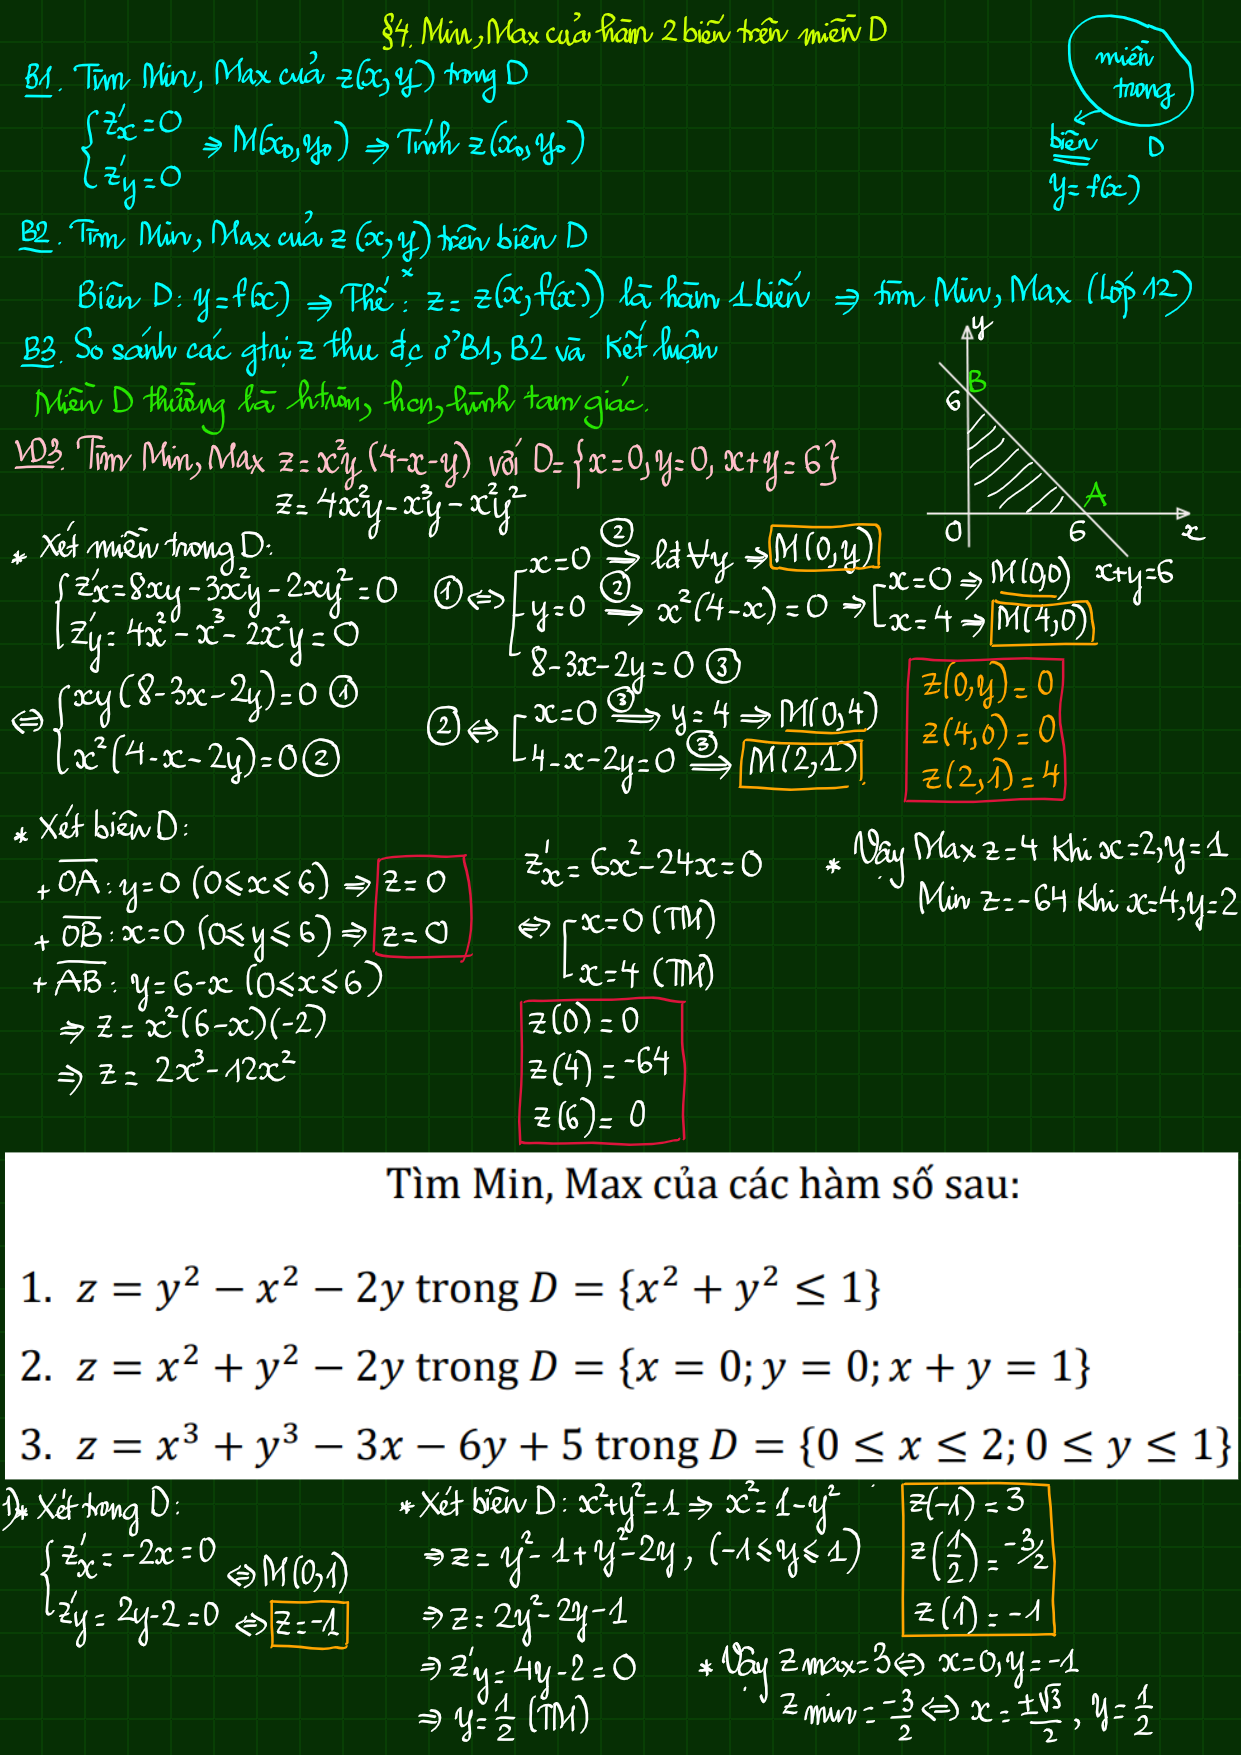 §4. Min, Max của hàm 2 biến trên miền D
B1. Tìm Min, Max của z(x, y) trong D
{ z'x = 0
z'y = 0 ⇒ M(x₀, y₀) ⇒ Tính z(x₀, y₀)
miền
trong
biên D
y = f(x)
B2. Tìm Min, Max của z (x, y) trên biên D
Biên D: y = f(x) ⇒ Thế: z = z(x, f(x)) là hàm 1 biến ⇒ tìm Min, Max (Lớp 12)
B3. So sánh các gtrị z thu đc ở B1, B2 và Kết luận
Miền D thường là htròn, hcn, hình tam giác.
y
B
6
A
0 6 x
x+y=6
VD3. Tìm Min, Max z = x²y (4-x-y) với D = {x=0, y=0, x+y=6}
z = 4x²y - x³y - x²y²
* Xét miền trong D:
{ z'x = 8xy - 3x²y - 2xy² = 0
z'y = 4x² - x³ - 2x²y = 0
⇔ { xy (8-3x-2y) = 0 ①
x² (4-x-2y) = 0 ②
① ⇔ [ x=0 ②⇒ lđ ∀y ⇒ M(0,y)
y=0 ②⇒ x²(4-x) = 0 ⇒ [ x=0 ⇒ M(0,0)
x=4 ⇒ M(4,0)
8-3x-2y=0 ③
② ⇔ [ x=0 ③⇒ y=4 ⇒ M(0,4)
4-x-2y=0 ③⇒ M(2,1)
z(0,y) = 0
z(4,0) = 0
z(2,1) = 4
* Xét biên D:
+ OA: y=0 (0≤x≤6) ⇒ z=0
+ OB: x=0 (0≤y≤6) ⇒ z=0
+ AB: y=6-x (0≤x≤6)
⇒ z = x²(6-x)(-2)
⇒ z = 2x³-12x²
z'x = 6x²-24x=0
⇔ [ x=0 (TM)
x=4 (TM)
z(0) = 0
z(4) = -64
z(6) = 0
* Vậy Max z=4 khi x=2, y=1
Min z=-64 khi x=4, y=2
Tìm Min, Max của các hàm số sau:
1. z = y² − x² − 2y trong D = {x² + y² ≤ 1}
2. z = x² + y² − 2y trong D = {x = 0; y = 0; x + y = 1}
3. z = x³ + y³ − 3x − 6y + 5 trong D = {0 ≤ x ≤ 2; 0 ≤ y ≤ 1}
1) * Xét trong D:
{ z'x = -2x = 0
z'y = 2y-2 = 0 ⇔ M(0,1)
⇔ z=-1
* Xét biên D: x²+y²=1 ⇒ x²=1-y²
⇒ z = y²-1+y²-2y, (-1≤y≤1)
⇒ z = 2y²-2y-1
⇒ z'y = 4y-2 = 0
⇒ y = 1/2 (TM)
z(-1) = 3
z(1/2) = -3/2
z(1) = -1
* Vậy z max=3 ⇔ x=0, y=-1
z min = -3/2 ⇔ x = ±√3/2, y = 1/2